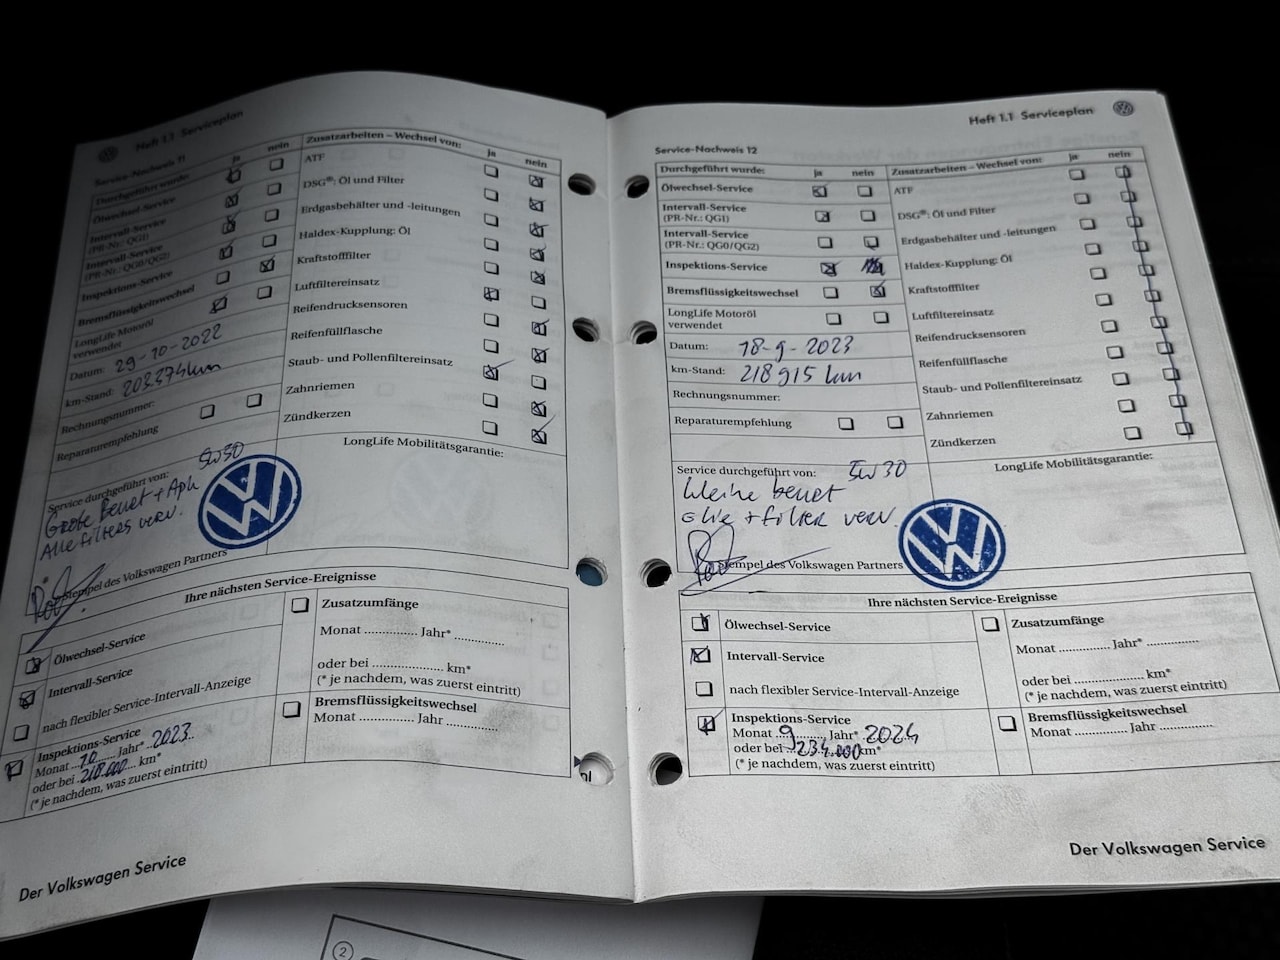 Heft 1.1 Serviceplan
Service-Nachweis 11
Durchgeführt wurde: ja nein
Ölwechsel-Service
Intervall-Service
(PR-Nr.: QG1)
Intervall-Service
(PR-Nr.: QG0/QG2)
Inspektions-Service
Bremsflüssigkeitswechsel
LongLife Motoröl
verwendet
Datum: 29-10-2022
km-Stand: 203.374 km
Rechnungsnummer:
Reparaturempfehlung
Zusatzarbeiten – Wechsel von: ja nein
ATF
DSG®: Öl und Filter
Erdgasbehälter und -leitungen
Haldex-Kupplung: Öl
Kraftstofffilter
Luftfiltereinsatz
Reifendrucksensoren
Reifenfüllflasche
Staub- und Pollenfiltereinsatz
Zahnriemen
Zündkerzen
Service durchgeführt von: 5W30
Grote Beurt + Apk
Alle filters verv.
Stempel des Volkswagen Partners
LongLife Mobilitätsgarantie:
Ihre nächsten Service-Ereignisse
Ölwechsel-Service
Intervall-Service
nach flexibler Service-Intervall-Anzeige
Inspektions-Service
Monat 10 Jahr* 2023
oder bei 218.000 km*
(* je nachdem, was zuerst eintritt)
Zusatzumfänge
Monat .............. Jahr* ..............
oder bei .................... km*
(* je nachdem, was zuerst eintritt)
Bremsflüssigkeitswechsel
Monat .............. Jahr ..............
Der Volkswagen Service
Heft 1.1 Serviceplan
Service-Nachweis 12
Durchgeführt wurde: ja nein
Ölwechsel-Service
Intervall-Service
(PR-Nr.: QG1)
Intervall-Service
(PR-Nr.: QG0/QG2)
Inspektions-Service
Bremsflüssigkeitswechsel
LongLife Motoröl
verwendet
Datum: 18-9-2023
km-Stand: 218915 km
Rechnungsnummer:
Reparaturempfehlung
Zusatzarbeiten – Wechsel von: ja nein
ATF
DSG®: Öl und Filter
Erdgasbehälter und -leitungen
Haldex-Kupplung: Öl
Kraftstofffilter
Luftfiltereinsatz
Reifendrucksensoren
Reifenfüllflasche
Staub- und Pollenfiltereinsatz
Zahnriemen
Zündkerzen
Service durchgeführt von: 5W30
kleine beurt
olie + filter verv.
Stempel des Volkswagen Partners
LongLife Mobilitätsgarantie:
Ihre nächsten Service-Ereignisse
Ölwechsel-Service
Intervall-Service
nach flexibler Service-Intervall-Anzeige
Inspektions-Service
Monat 9 Jahr* 2024
oder bei 234.000 km*
(* je nachdem, was zuerst eintritt)
Zusatzumfänge
Monat .............. Jahr* ..............
oder bei .................... km*
(* je nachdem, was zuerst eintritt)
Bremsflüssigkeitswechsel
Monat .............. Jahr ..............
Der Volkswagen Service
2